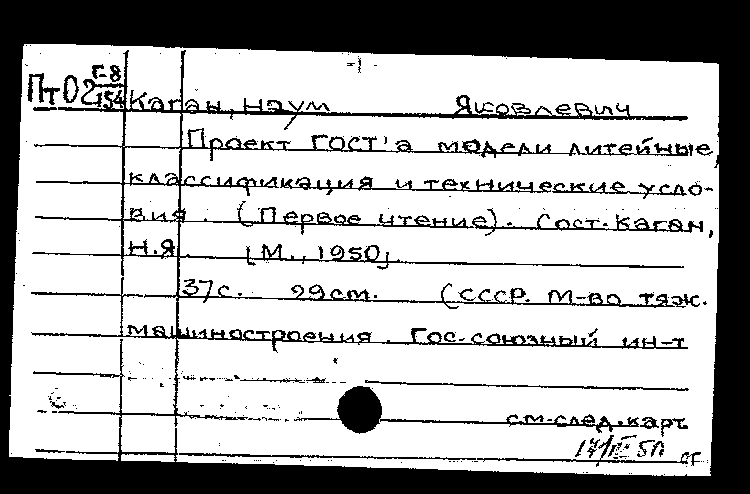 -1-
Пт02 Г-8/154 Каган, Наум Яковлевич
Проект ГОСТ'а модели литейные,
классификация и технические усло-
вия. (Первое чтение). Сост. Каган,
Н.Я. [М., 1950].
37с. 29см. (СССР. М-во тяж.
машиностроения. Гос. союзный ин-т
см. след. карт
17/III 50